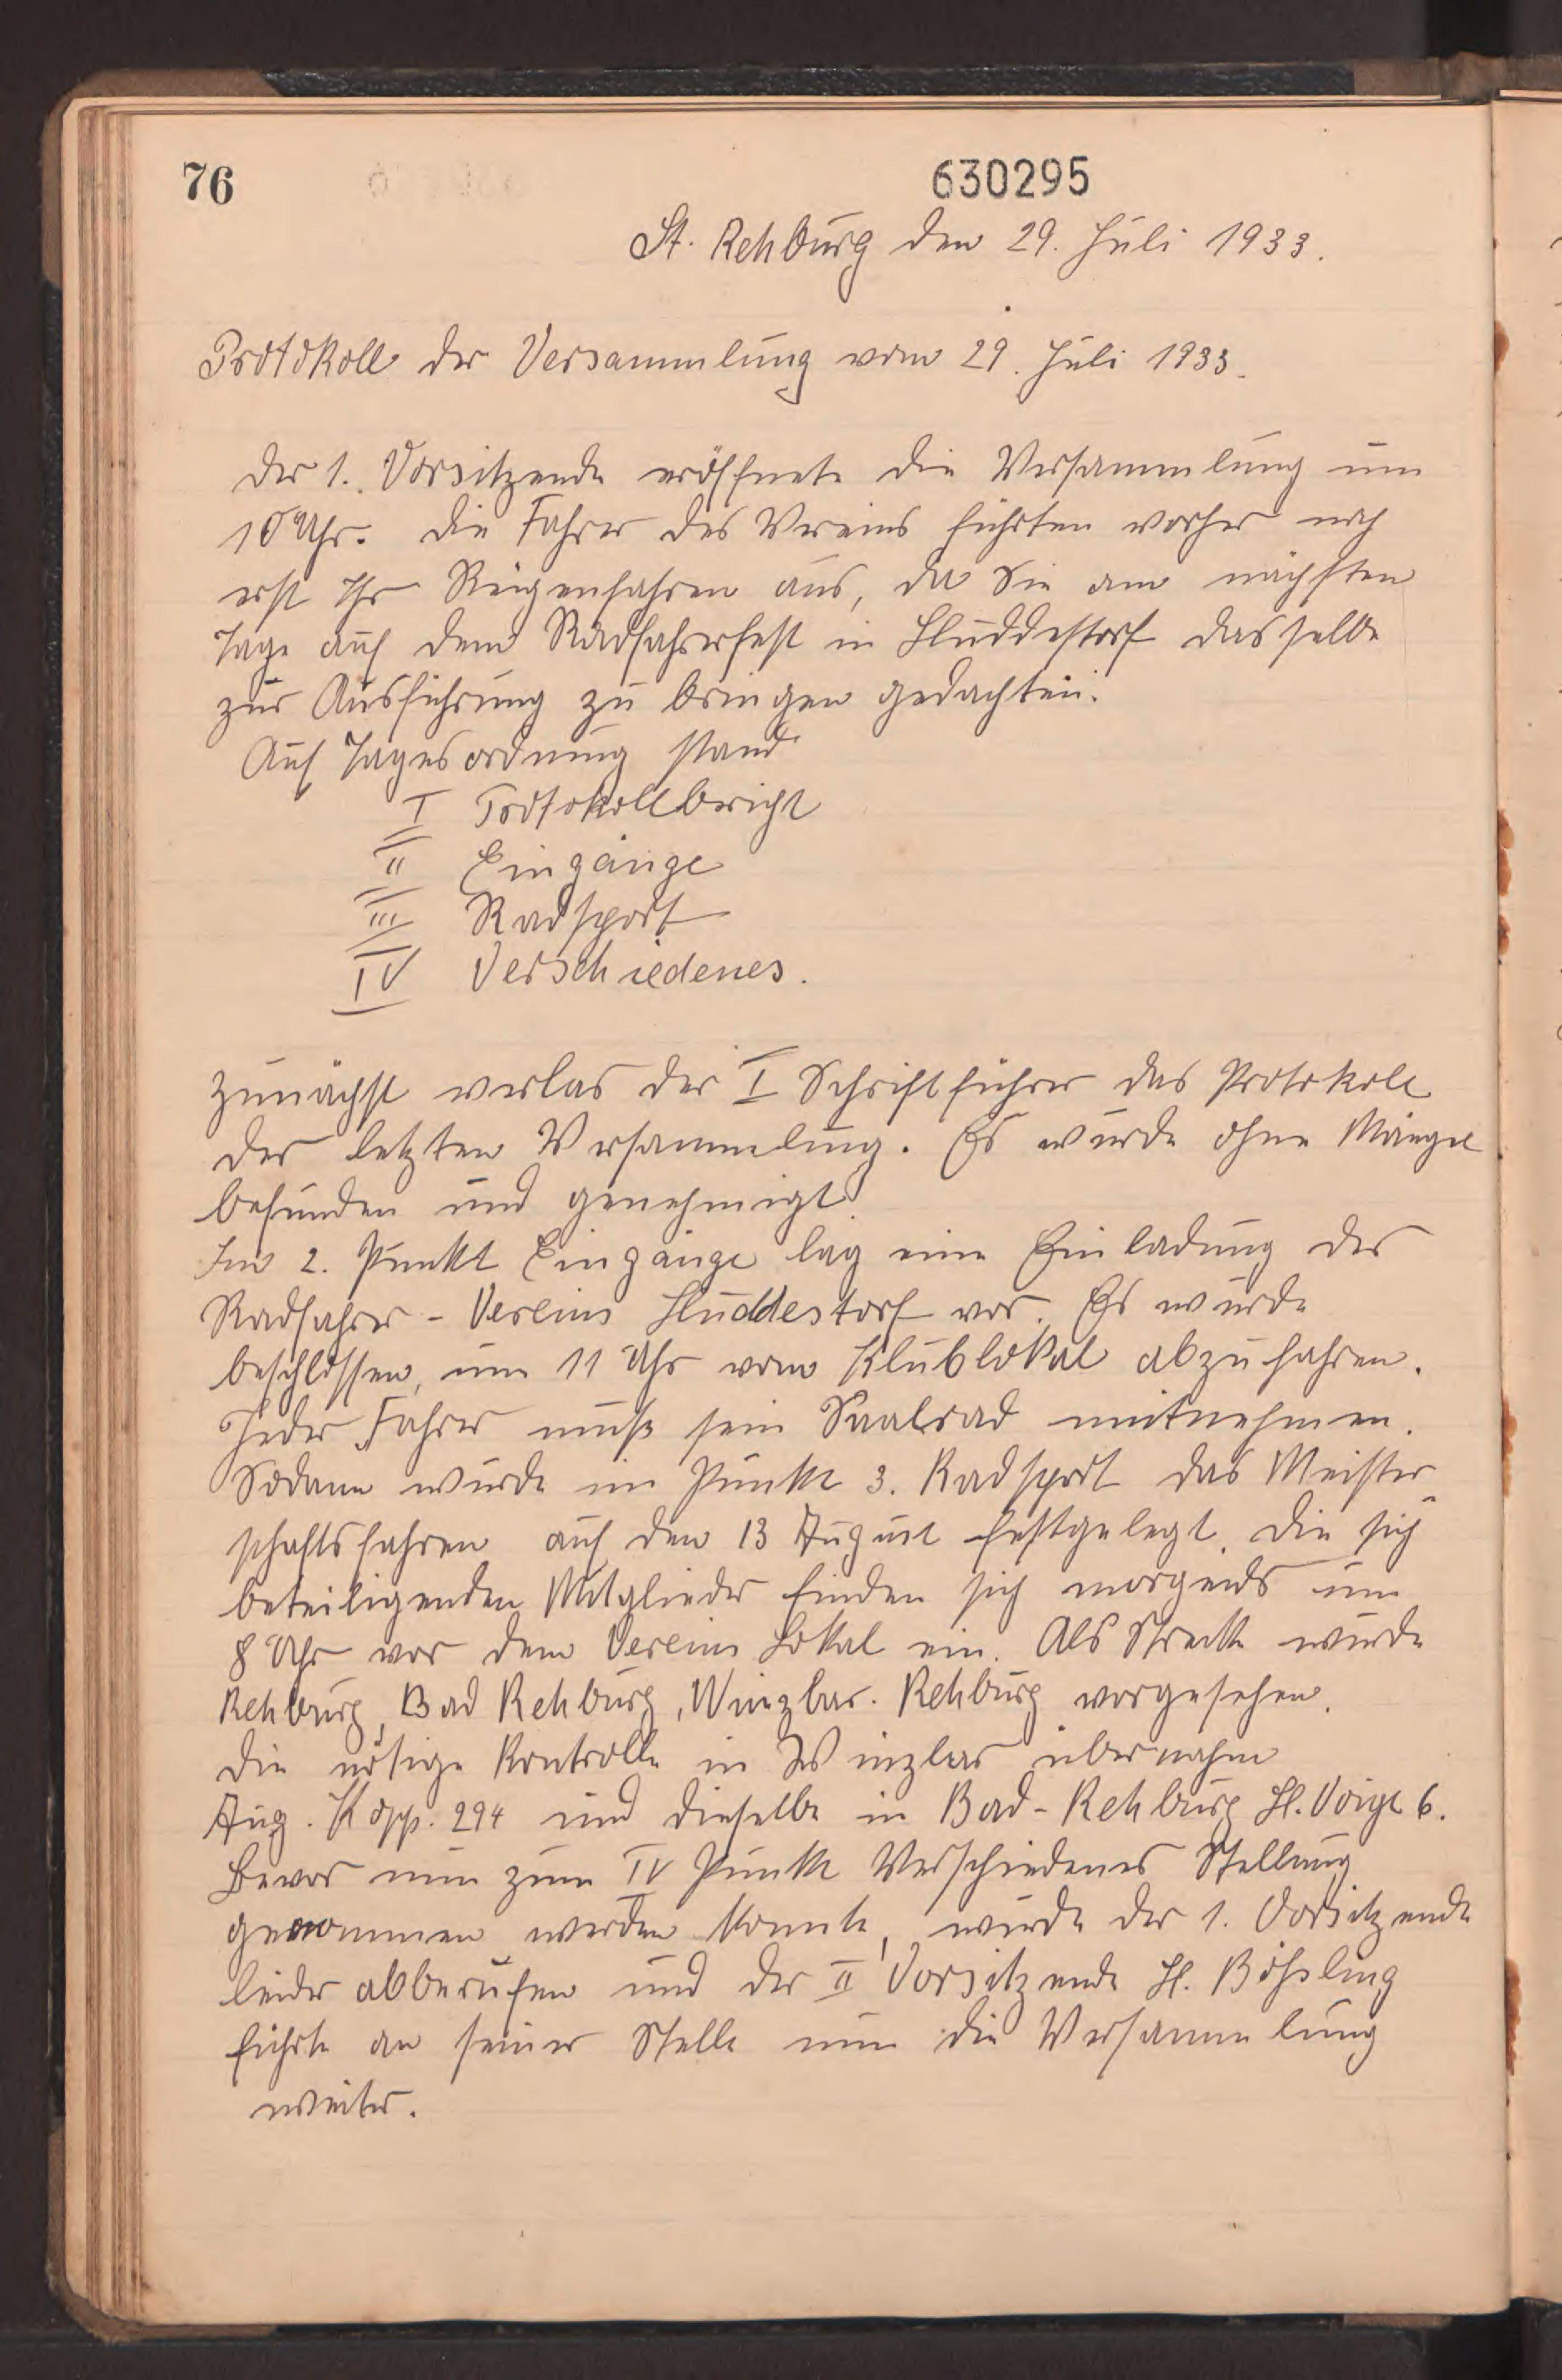 76
630295
St. Rehburg den 29. Juli 1933.
Protokoll der Versammlung vom 29. Juli 1933.
Der 1. Vorsitzende eröffnete die Versammlung um
10 Uhr. Die Fahrer des Vereins führten vorher noch
erst Ihr Reigenfahren aus, da Sie am nächsten
Tage auf dem Radfahrerfest in Huddestorf dasselbe
zur Ausführung zu bringen gedachten.
Auf Tagesordnung stand
I Protokollbericht
II Eingänge
III Radsport
IV Verschiedenes.
Zunächst verlas der I Schriftführer das Protokoll
der letzten Versammlung. Es wurde ohne Mängel
befunden und genehmigt.
Im 2. Punkt Eingänge lag eine Einladung des
Radfahrer-Vereins Huddestorf vor. Es wurde
beschlossen, um 11 Uhr vom Klublokal abzufahren.
Jeder Fahrer muß sein Saalrad mitnehmen.
Sodann wurde im Punkte 3. Radsport das Meister-
schaftsfahren auf den 13 August festgelegt. Die sich
beteiligenden Mitglieder finden sich morgends um
8 Uhr vor dem Vereins Lokal ein. Als Strecke wurde
Rehburg, Bad Rehburg, Winzlar. Rehburg vorgesehen.
Die nötige Kontrolle in Winzlar übernahm
Aug. Kopp. 294 und dieselbe in Bad-Rehburg H. Voigt 6.
Bevor nun zum IV Punkte Verschiedenes Stellung
genommen werden konnte, wurde der 1. Vorsitzende
leider abberufen und der II Vorsitzende H.
führte an seiner Stelle nun die Versammlung
weiter.